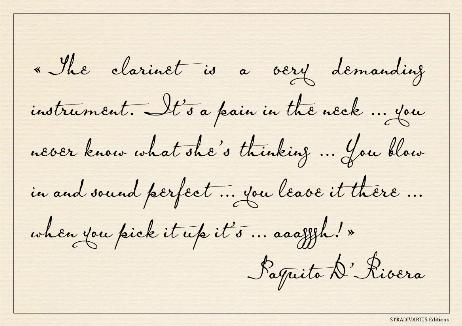 « The clarinet is a very demanding
instrument. It's a pain in the neck ... you
never know what she's thinking ... You blow
in and sound perfect ... you leave it there ...
when you pick it up it's ... aaagggh! »
Paquito D'Rivera
STRADIVARIUS Editions